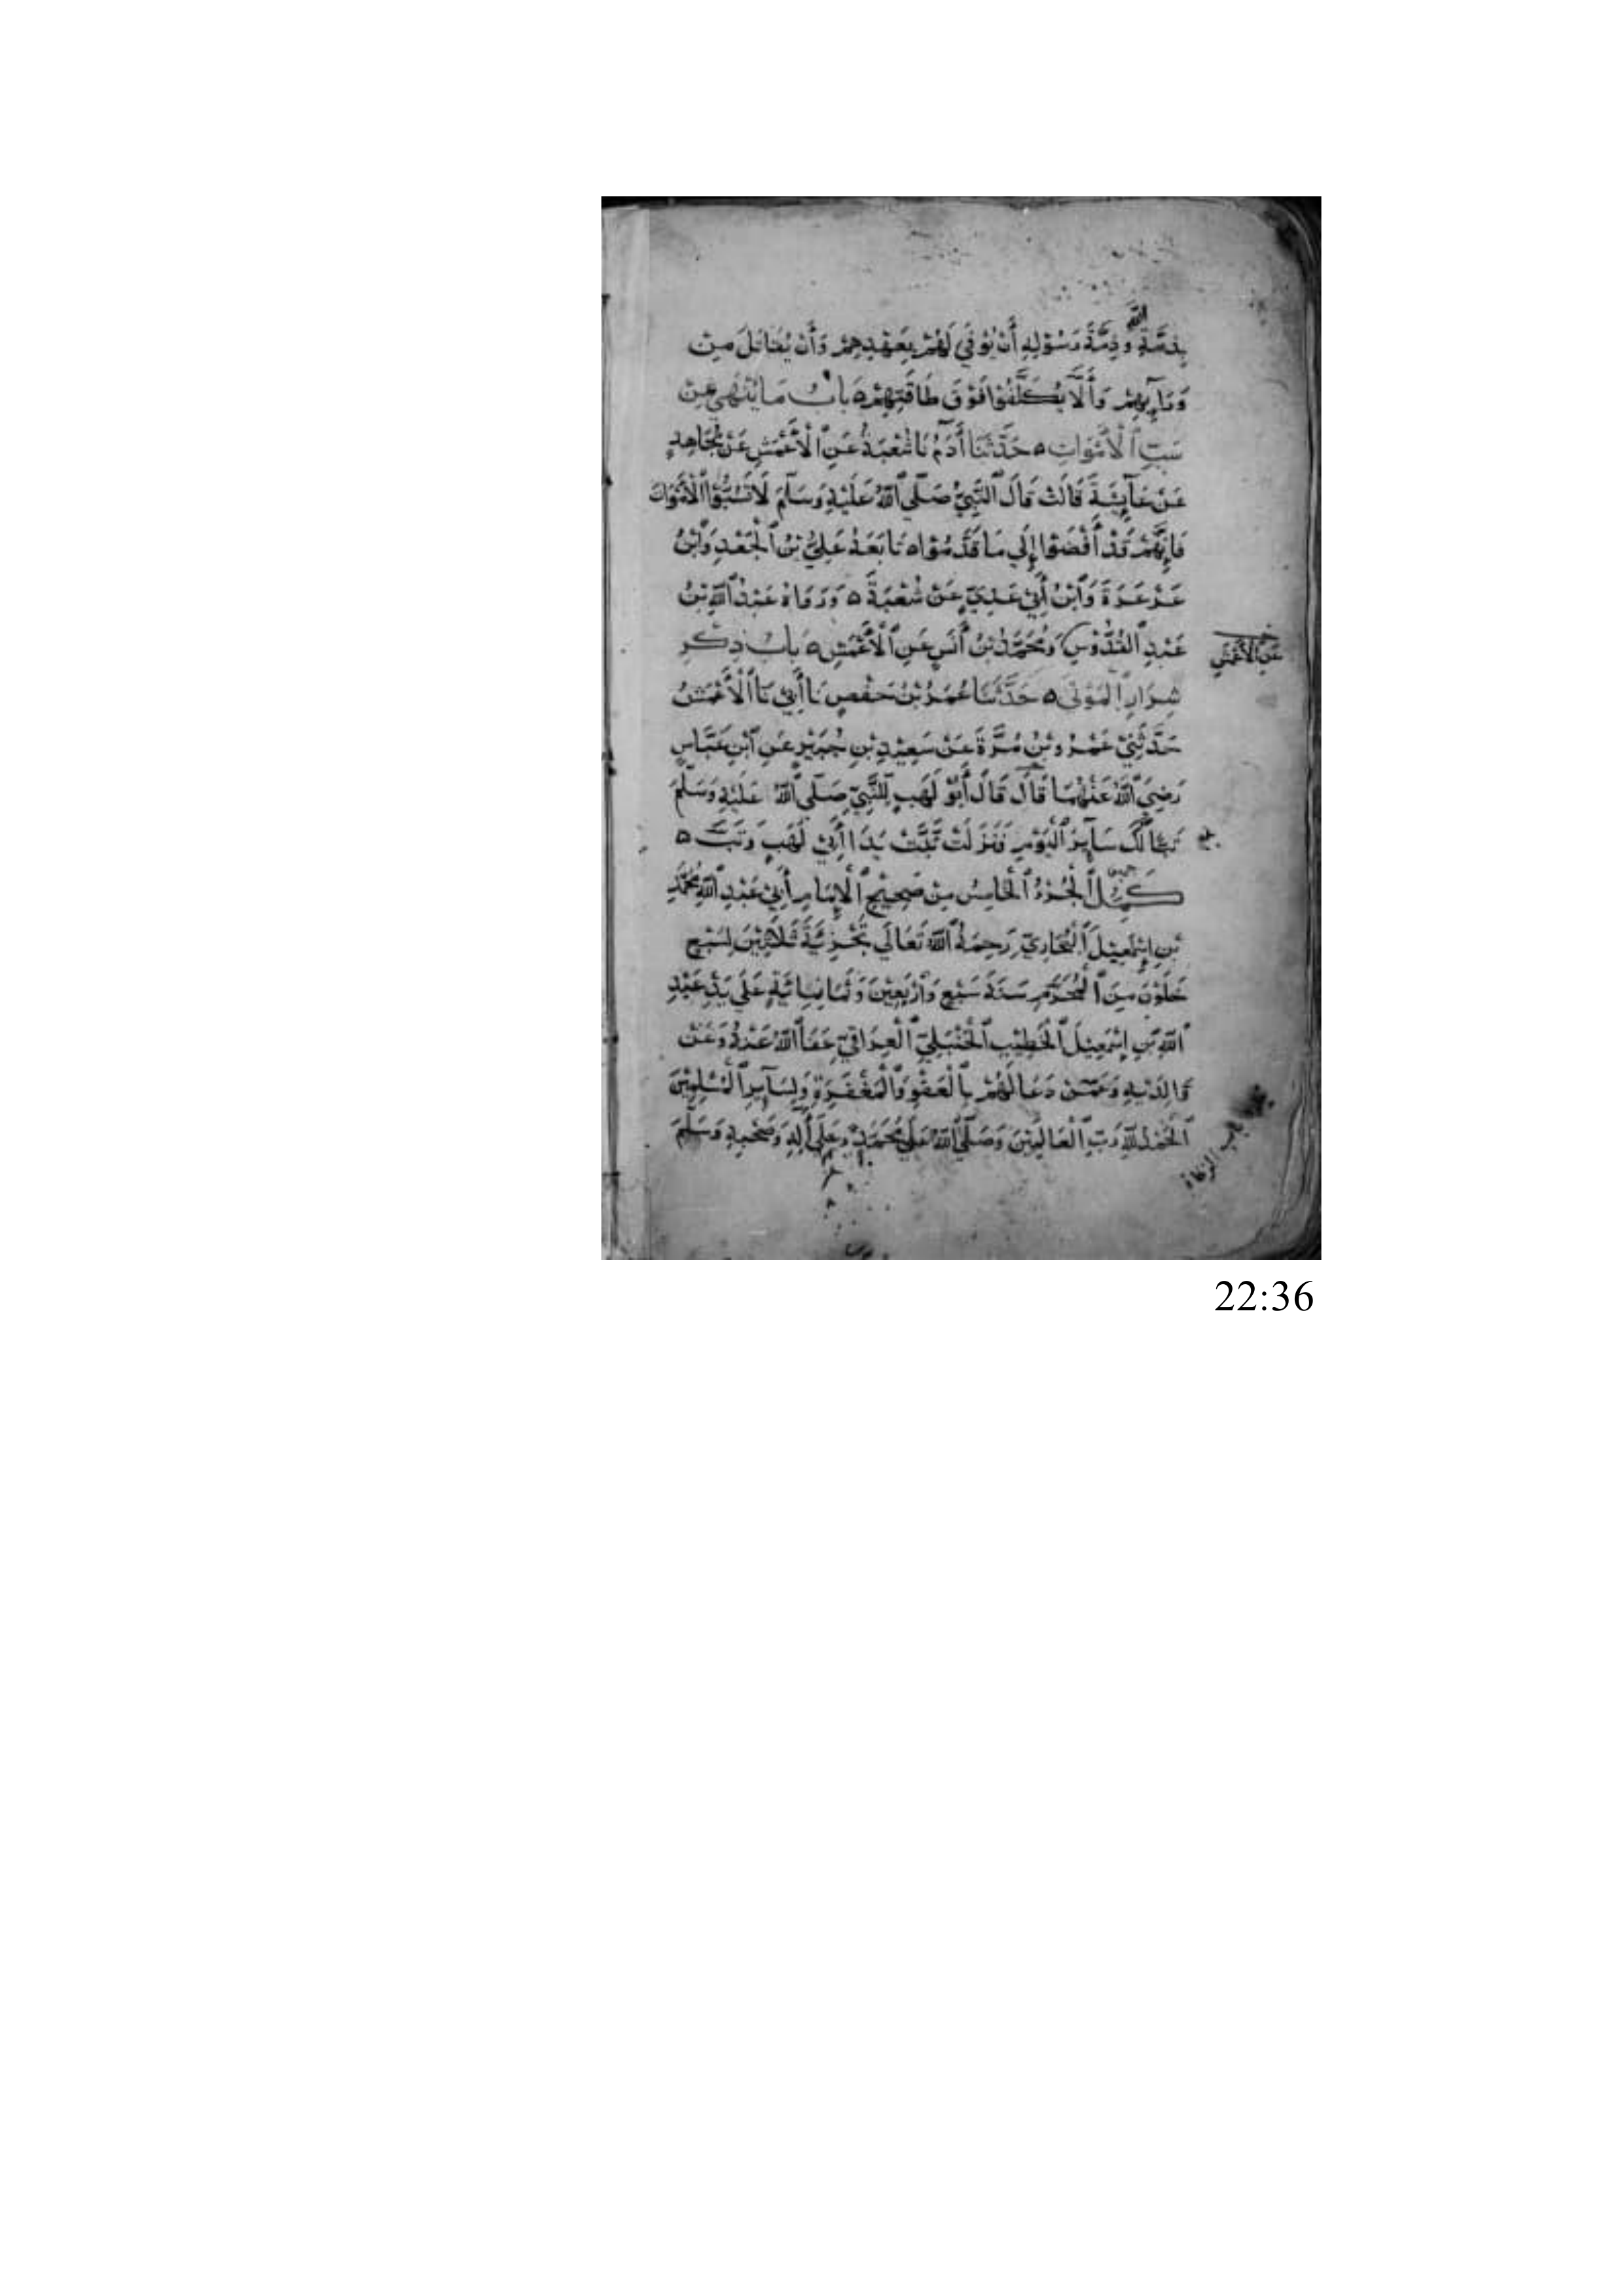 بِذِمَّةِ اللَّهِ وَذِمَّةِ رَسُوْلِهِ أَنْ يُوْفَي لَهُمْ بِعَهْدِهِمْ وَأَنْ يُقَاتَلَ مِنْ
وَرَآئِهِمْ وَأَلَّا يُكَلَّفُوْا فَوْقَ طَاقَتِهِمْ ه بَابُ مَا يُنْهَى عَنْ
سَبِّ الْأَمْوَاتِ ه حَدَّثَنَا أَدَمُ نَا شُعْبَةُ عَنِ الْأَعْمَشِ عَنْ مُجَاهِدٍ
عَنْ عَآئِشَةَ قَالَتْ قَالَ النَّبِيُّ صَلَّي اللَّهُ عَلَيْهِ وَسَلَّمَ لَا تَسُبُّوْا الْأَمْوَاتَ
فَإِنَّهُمْ قَدْ أَفْضَوْا إِلَي مَا قَدَّمُوْا ه تَابَعَهُ عَلِيُّ بْنُ الْجَعْدِ وَابْنُ
عَرْعَرَةَ وَابْنُ أَبِيْ عَدِيٍّ عَنْ شُعْبَةَ ه وَرَوَاهُ عَبْدُ اللَّهِ بْنُ
عَبْدِ الْقُدُّوْسِ وَمُحَمَّدُ بْنُ أَنَسٍ عَنِ الْأَعْمَشِ ه بَابُ ذِكْرِ
عَنِ الْأَعْمَشِ
شِرَارِ الْمَوْتَى ه حَدَّثَنَا عُمَرُ بْنُ حَفْصٍ نَا أَبِيْ نَا الْأَعْمَشُ
حَدَّثَنِيْ عَمْرُو بْنُ مُرَّةَ عَنْ سَعِيْدِ بْنِ جُبَيْرٍ عَنِ ابْنِ عَبَّاسٍ
رَضِيَ اللَّهُ عَنْهُمَا قَالَ قَالَ أَبُوْ لَهَبٍ لِلنَّبِيِّ صَلَّي اللَّهُ عَلَيْهِ وَسَلَّمَ
تَبًّا لَكَ سَآئِرَ الْيَوْمِ فَنَزَلَتْ تَبَّتْ يَدَا أَبِيْ لَهَبٍ وَتَبَّ ه
كَمُلَ الْجُزْءُ الْخَامِسُ مِنْ صَحِيْحِ الْإِمَامِ أَبِيْ عَبْدِ اللَّهِ مُحَمَّدِ
بْنِ إِسْمَعِيْلَ الْبُخَارِيِّ رَحِمَهُ اللَّهُ تَعَالَي تَجْزِئَةَ ثَلَاثِيْنَ لِسَبْعٍ
خَلَوْنَ مِنَ الْمُحَرَّمِ سَنَةَ سَبْعٍ وَأَرْبَعِيْنَ وَثَمَانِمِائَةٍ عَلَي يَدِ عَبْدِ
اللَّهِ بْنِ إِسْمَعِيْلَ الْخَطِيْبِ الْحَنْبَلِيِّ الْعِرَاقِيِّ عَفَا اللَّهُ عَنْهُ وَعَنْ
وَالِدَيْهِ وَعَمَّنْ دَعَا لَهُمْ بِالْعَفْوِ وَالْمَغْفِرَةِ وَلِسَآئِرِ الْمُسْلِمِيْنَ
الْحَمْدُ لِلَّهِ رَبِّ الْعَالَمِيْنَ وَصَلَّي اللَّهُ عَلَي مُحَمَّدٍ وَعَلَي أَلِهِ وَصَحْبِهِ وَسَلَّمَ
باب الزكاة
22:36